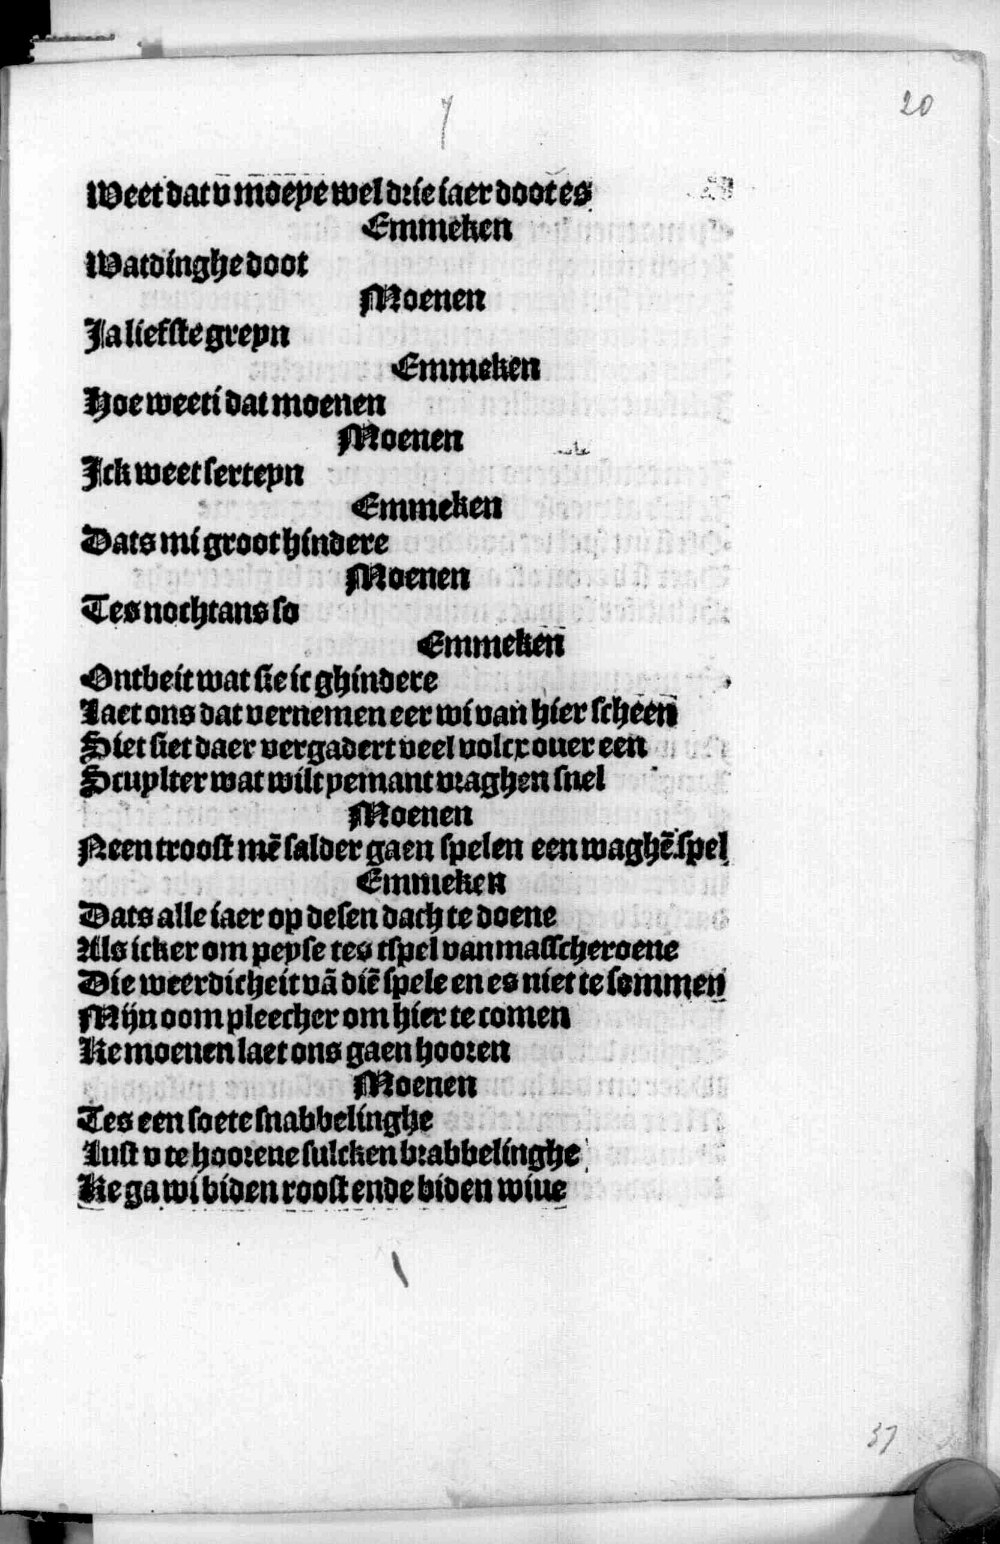 20
Weet dat v moeye wel drie iaer doot es
Emmeken
Wat dinghe doot
Moenen
Ja liefste greyn
Emmeken
Hoe weeti dat moenen
Moenen
Ick weet serteyn
Emmeken
Dats mi groot hindere
Moenen
Tes nochtans so
Emmeken
Ontbeit wat sie ic ghindere
Laet ons dat vernemen eer wi van hier scheen
Siet siet daer vergadert veel volcx ouer een
Scuylter wat wilt yemant vraghen snel
Moenen
Neen troost mē salder gaen spelen een waghē spel
Emmeken
Dats alle iaer op desen dach te doene
Als icker om peyse tes tspel van masscheroene
Die weerdicheit vā diē spele en es niet te sommen
Mijn oom pleecher om hier te comen
Ke moenen laet ons gaen hooren
Moenen
Tes een soete snabbelinghe
Lust v te hoorene sulcken brabbelinghe
Ke ga wi biden roost ende biden wiue
37